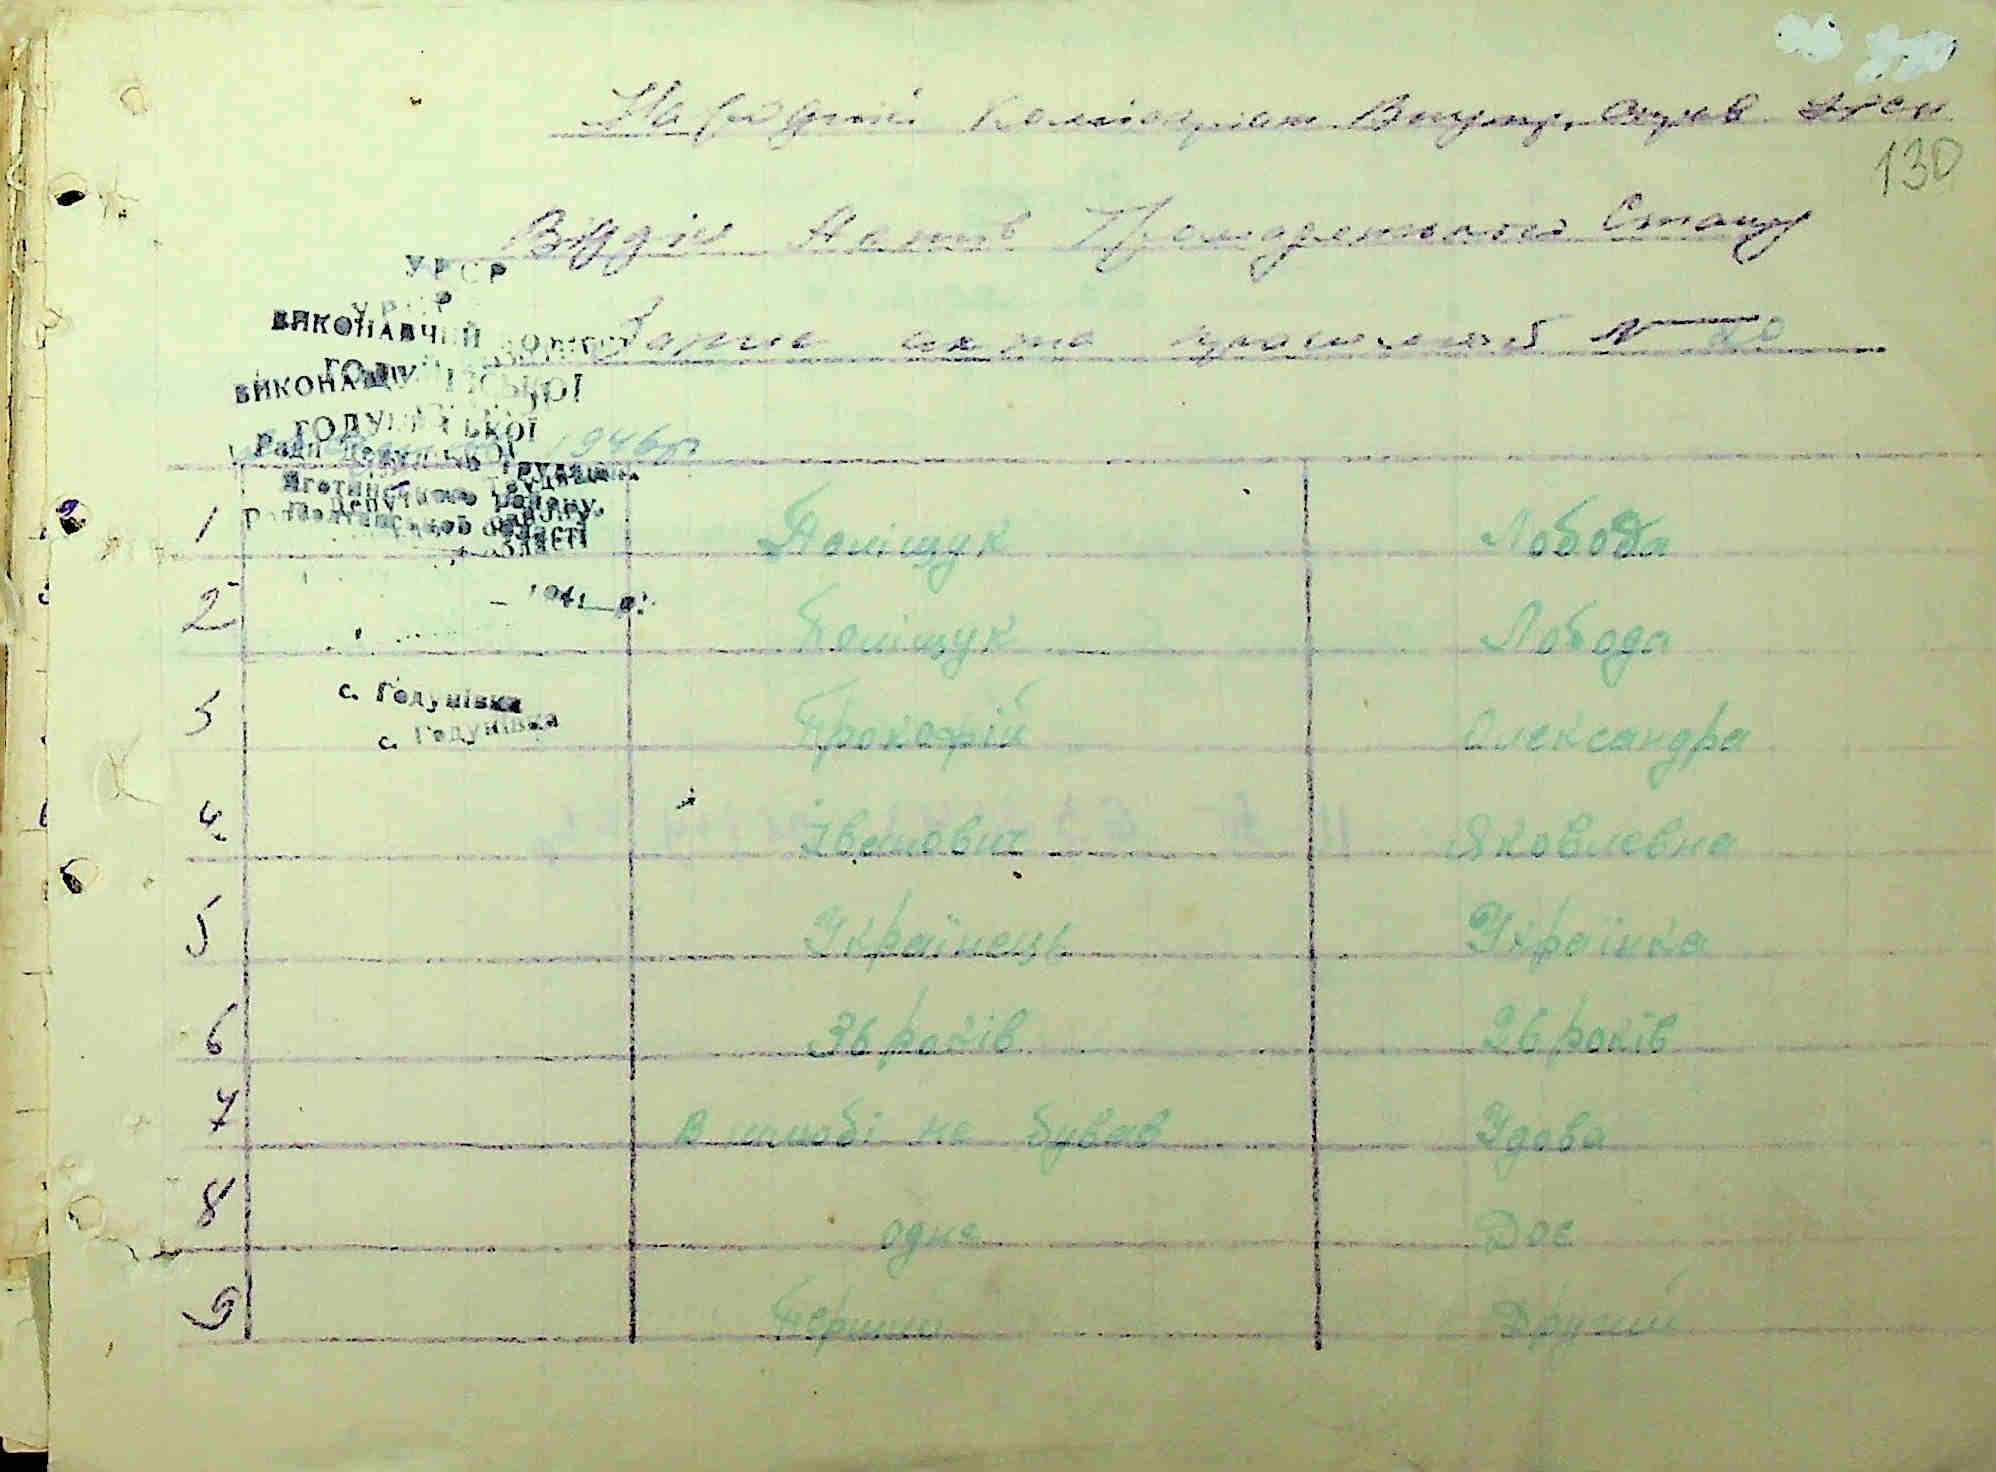 Народній Комісаріат Внутр. Справ
130
Відділ Актів Громадянського Стану
Запис акта про шлюб №
УРСР
УРСР
ВИКОНАВЧИЙ КОМІТЕТ
ВИКОНАВЧ
ГОДУНІВСЬКОЇ
ГОДУНІВСЬКОЇ
Ради Депутатів Трудящих
Яготинського району,
Полтавської області
1946р
194 р.
с. Годунівка
с. Годунівка
1 Поліщук Лобода
2 Поліщук Лобода
3 Прокофій Олександра
4 Іванович Яковлевна
5 Українець Українка
6 36 років 26 років
7 В шлюбі не бував Удова
8 одне Двое
9 Перший Другий